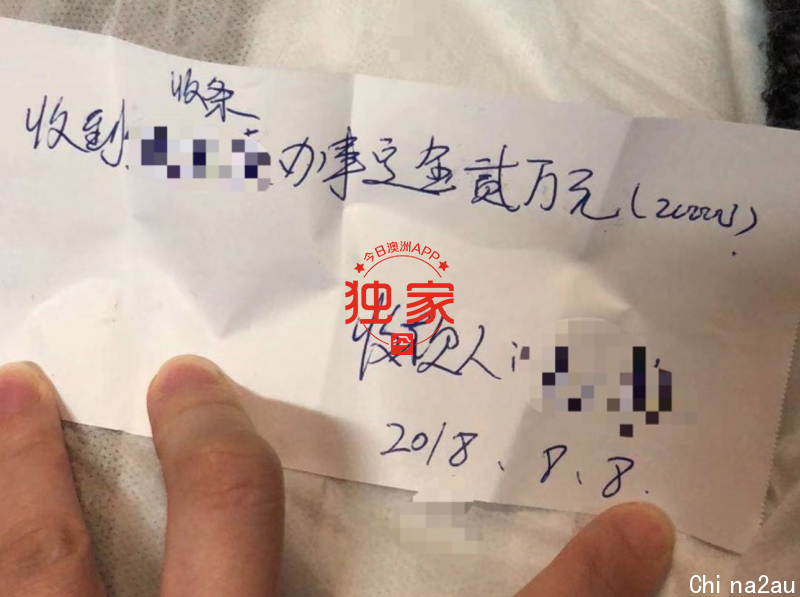 收条
收到 办事定金贰万元(20000)
今日澳洲APP
独家
收款人:
2018、8、8.
China2au